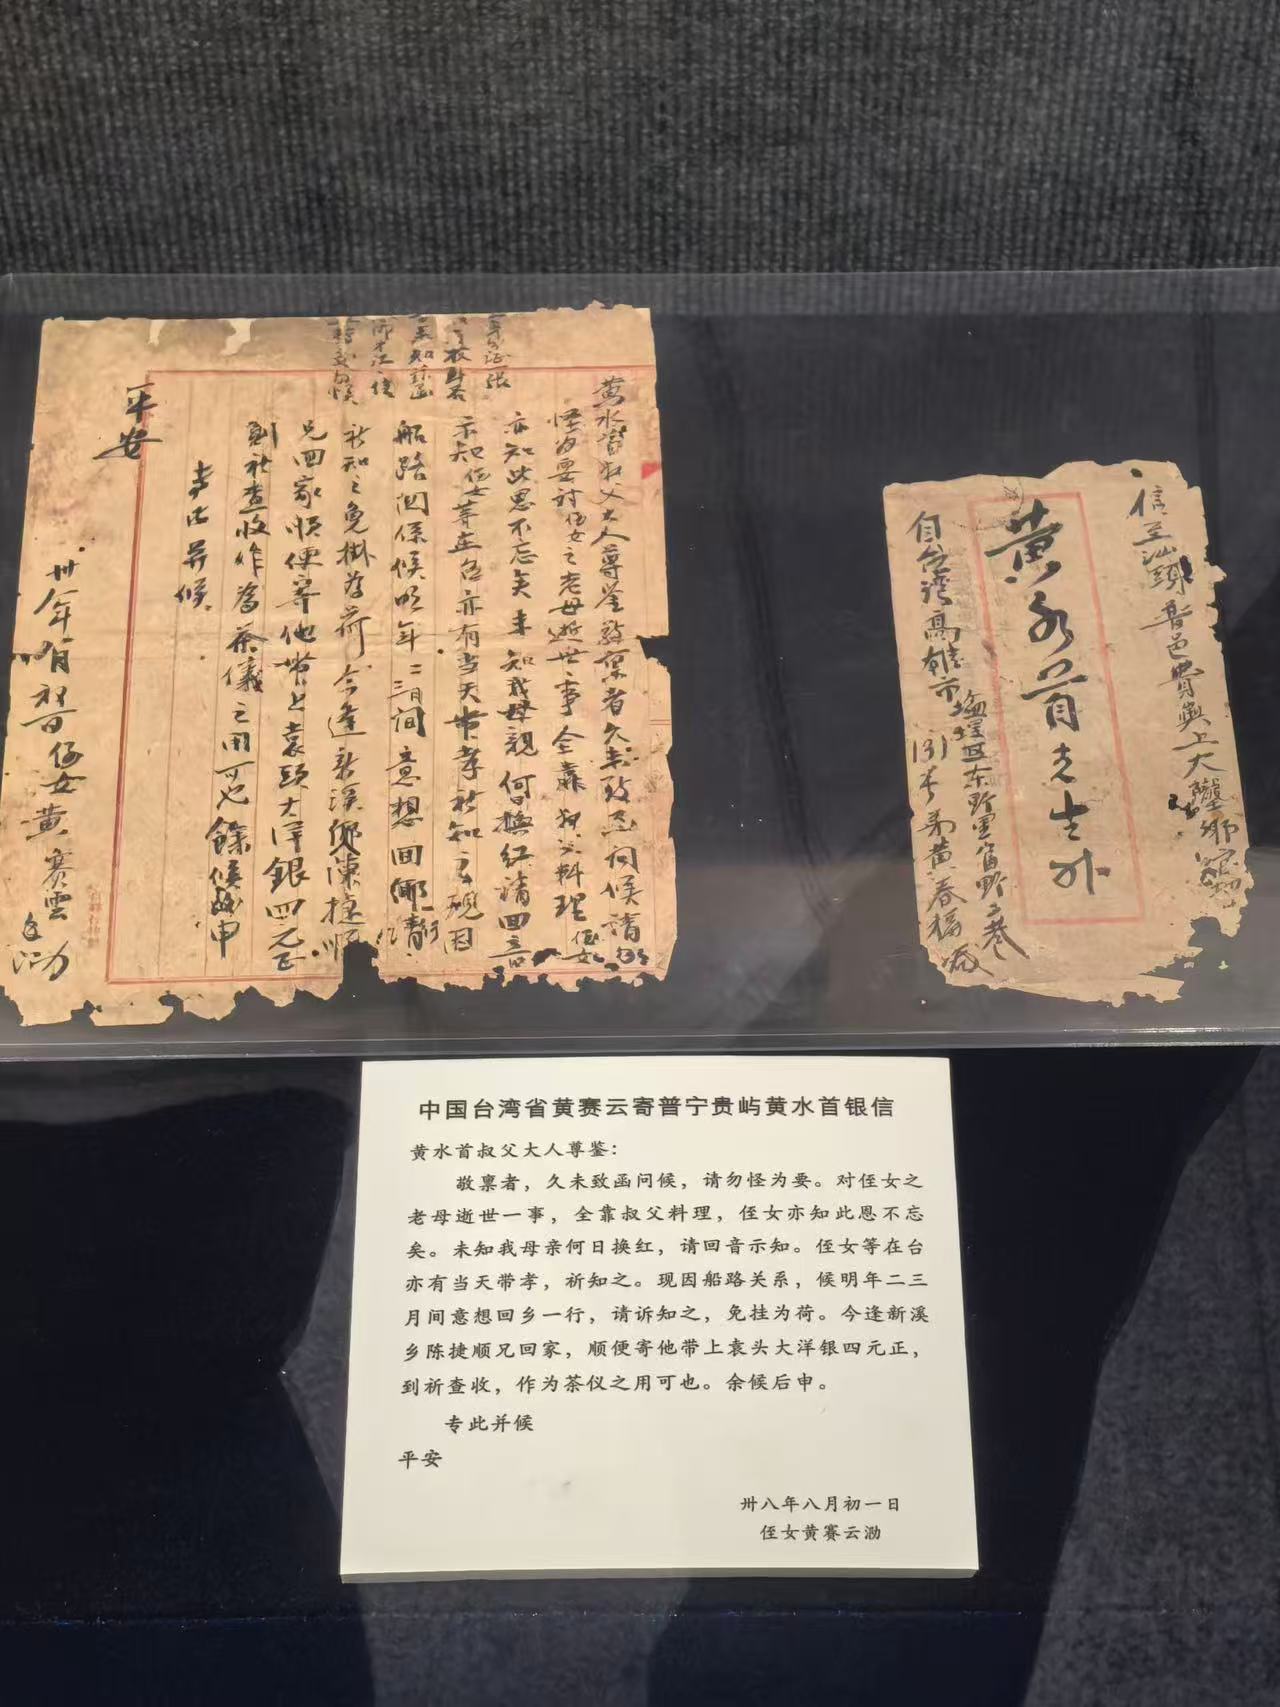 黄水首叔父大人尊鉴敬禀者久未致函问候请勿
怪为要对侄女之老母逝世一事全靠叔父料理侄女
亦知此恩不忘矣未知我母親何日換红请回音
示知侄女等在台亦有当天带孝祈知之现因
船路関係候明年二三月间意想回鄉一行请
祈知之免掛为荷今逢新溪鄉陳捷順
兄回家順便寄他带上袁頭大洋銀四元正
到祈查收作為茶儀之用可也餘候後申
专此并候
平安
卅八年八月初一日侄女黄赛雲泐
信至汕頭普邑貴嶼上大壠鄉
黄水首先生外
自台湾高雄市塩埕区东野里富野二巷
131号弟黄春福緘
中国台湾省黄赛云寄普宁贵屿黄水首银信
黄水首叔父大人尊鉴：
敬禀者，久未致函问候，请勿怪为要。对侄女之
老母逝世一事，全靠叔父料理，侄女亦知此恩不忘
矣。未知我母亲何日换红，请回音示知。侄女等在台
亦有当天带孝，祈知之。现因船路关系，候明年二三
月间意想回乡一行，请诉知之，免挂为荷。今逢新溪
乡陈捷顺兄回家，顺便寄他带上袁头大洋银四元正，
到祈查收，作为茶仪之用可也。余候后申。
专此并候
平安
卅八年八月初一日
侄女黄赛云泐